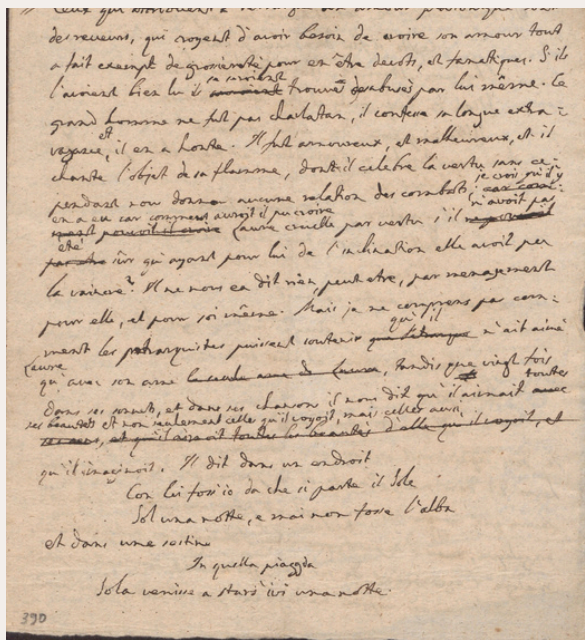 des reveurs, qui croyent d'avoir besoin de croire son amour tout
a fait exempt de grossiereté pour en être devots, et fanatiques. S'ils
l'avoient bien lu ils se seroient trouvés desabusés par lui même. Ce
grand homme ne fut pas charlatan, il confessa sa longue extra=
vagance, et il en a honte. Il fut amoureux, et malheureux, et il
chante l'objet de sa flamme, dont il celebre la vertu sans ce=
pendant nous donner aucune relation des combats. je crois qu'il y
en a eu car comment auroit il pu croire Laure cruelle par vertu s'il n'avoit pas
été sûr qu'ayant pour lui de l'inclination elle avoit pu
la vaincre? Il ne nous en dit rien, peut etre, par menagement
pour elle, et pour soi même. Mais je ne comprens pas com=
ment les petrarquistes puissent soutenir qu'il n'ait aimé
Laure
qu'avec son ame la seule ame de Laure, tandis que vingt fois
dans ses sonnets, et dans ses chansons il nous dit qu'il aimait toutes
ses beautés et non seulement celles qu'il voyoit, mais celles aussi
et qu'il aimoit toutes les beautés d'elle qu'il voyoit, et
qu'il imaginoit. Il dit dans un endroit
Con lei foss'io da che si parte il Sole
Sol una notte, e mai non fosse l'alba
et dans une sestine
In quella piaggia
Sola venisse a stars' ivi una notte.
390